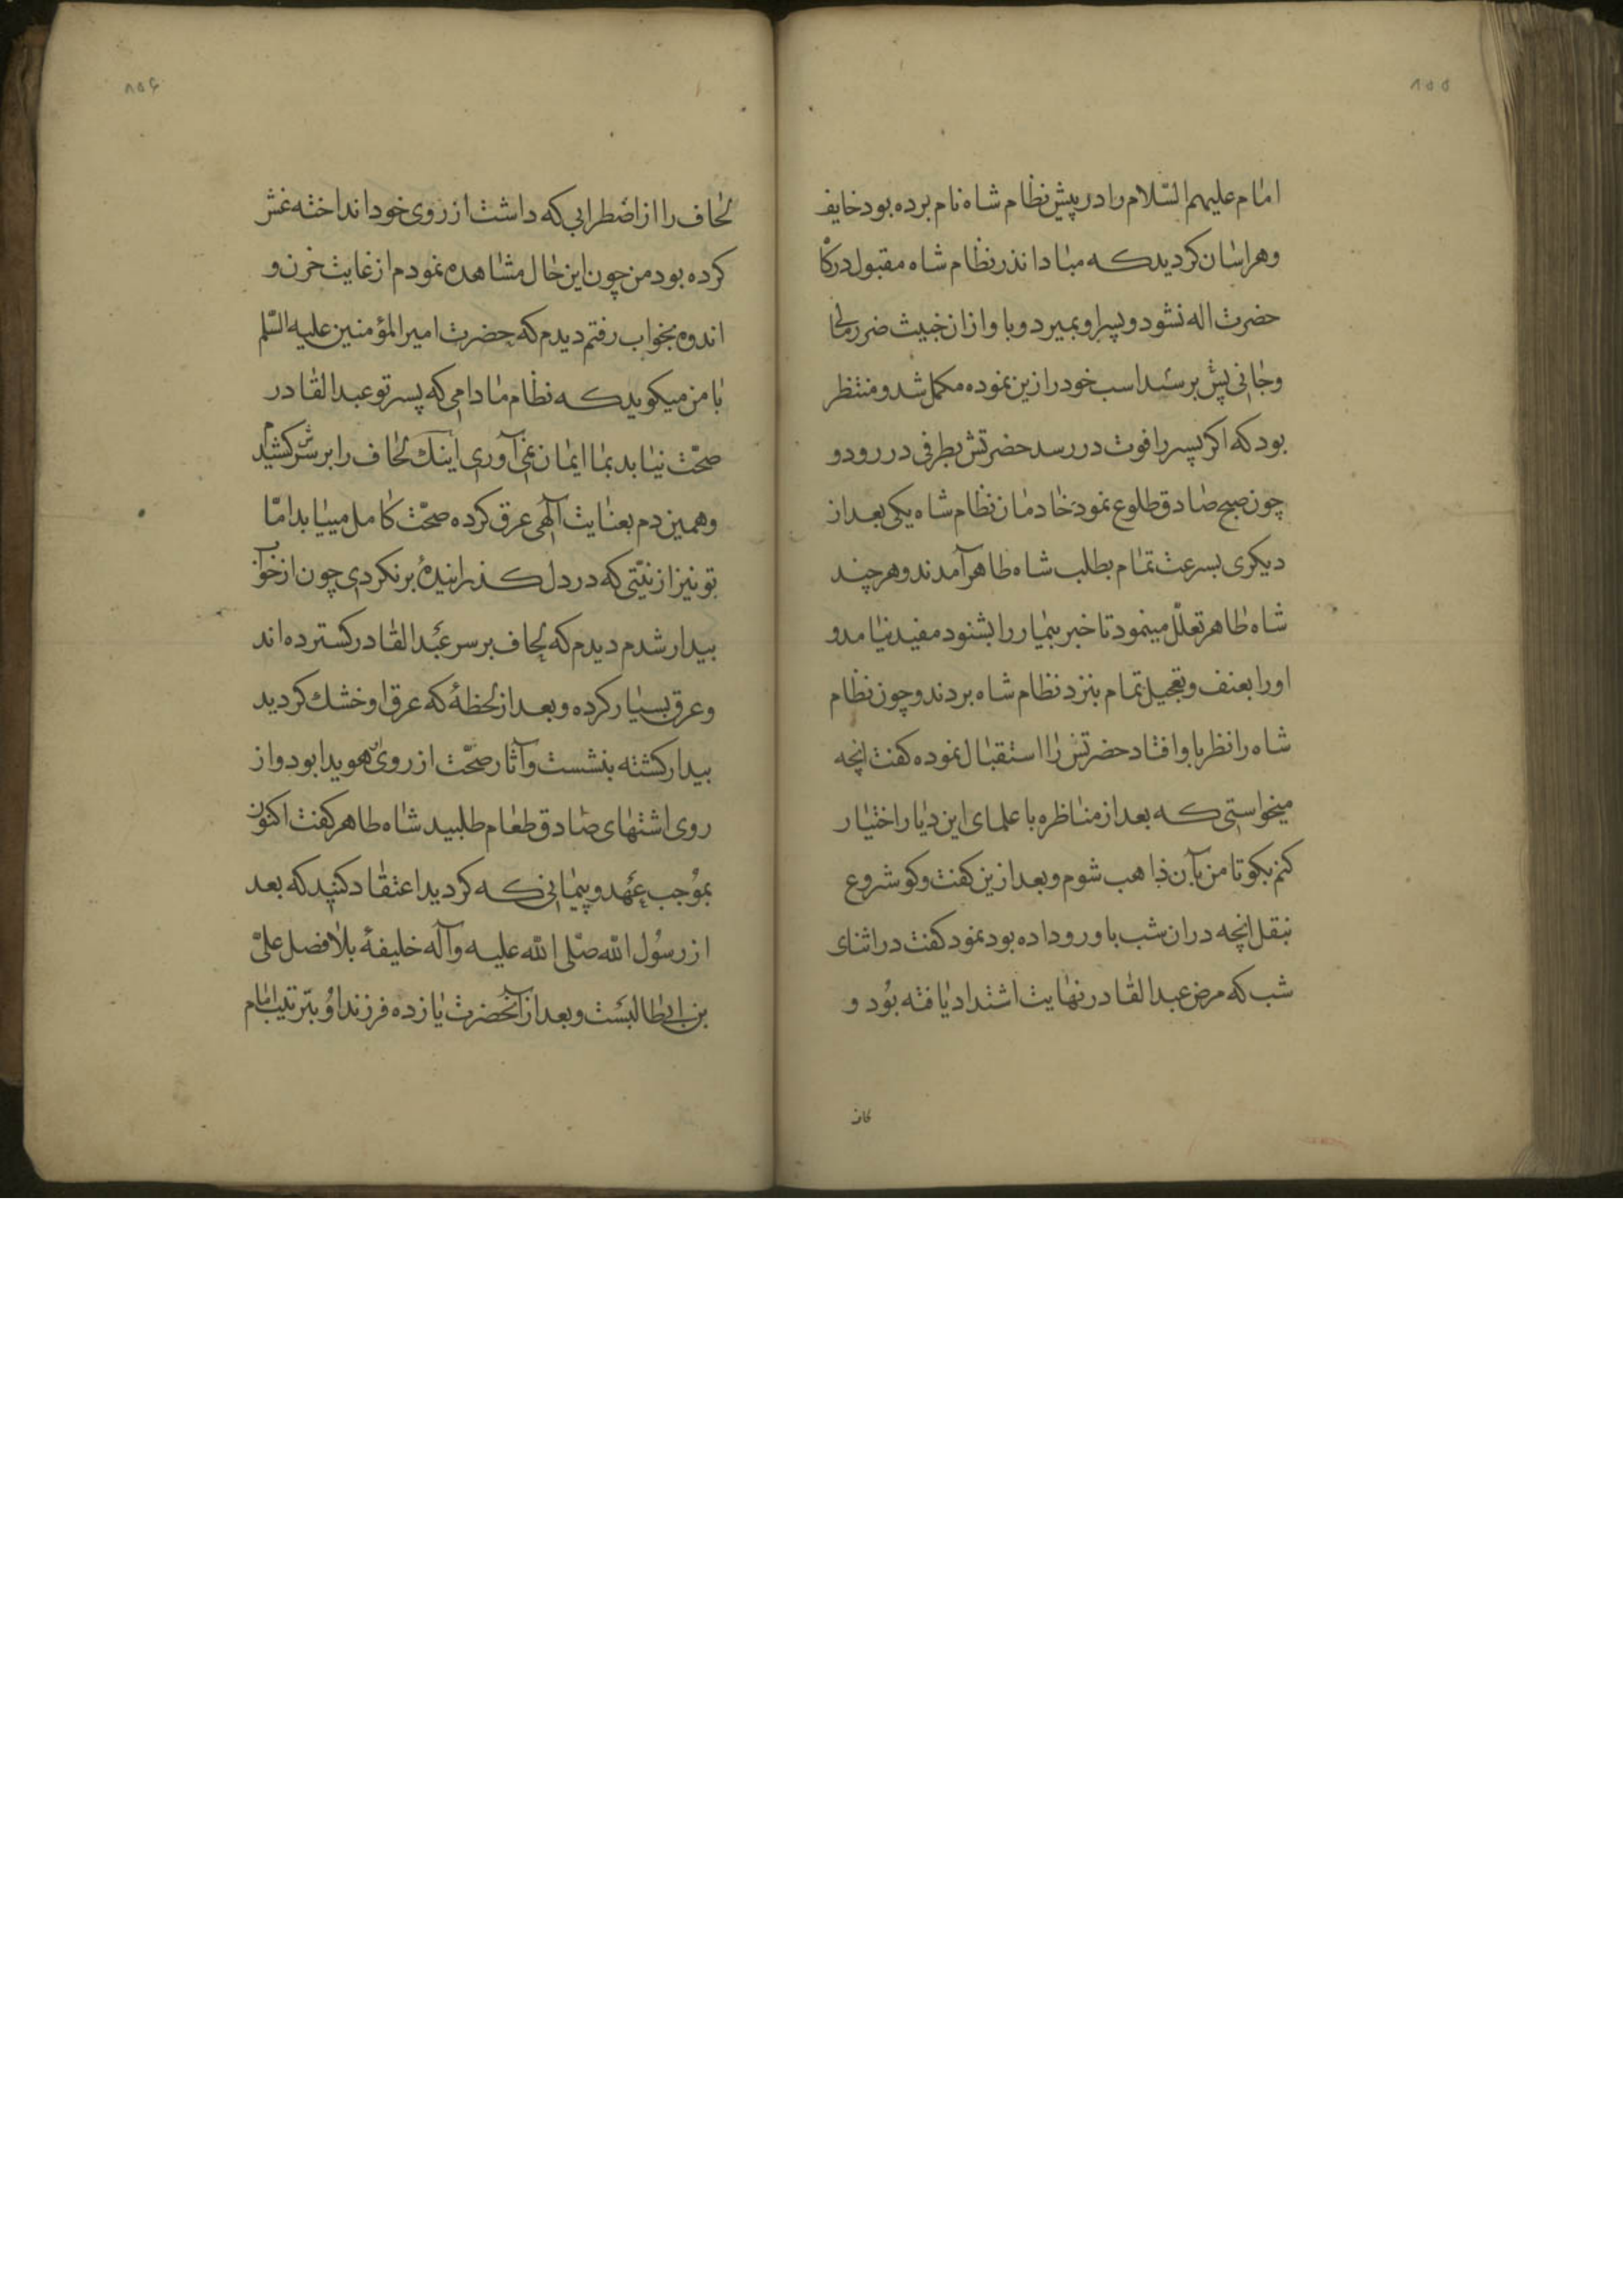 ۸۵۵
امام علیهم السّلام را در پیش نظام شاه نام برده بود خایف
وهراسان کردید که مبادا نذر نظام شاه مقبول درکا
حضرت اله نشود و پسر او بمیرد و باو ازان خبیث ضرر مالی
وجانی پش برسد اسب خود را زین نموده مکمل شد و منتظر
بود که اکر پسر را فوت در رسد حضرتش بطرفی در رود و
چون صبح صادق طلوع نمود خادمان نظام شاه یکی بعد از
دیکری بسرعت تمام بطلب شاه طاهر آمدند و هر چند
شاه طاهر تعلّل مینمود تا خبر بیمار را بشنود مفید نیامد و
اورا بعنف و تعجیل تمام بنزد نظام شاه بردند و چون نظام
شاه را نظر باو افتاد حضرتش را استقبال نموده کفت انچه
میخواستی که بعد از مناظره با علمای این دیار اختیار
کنم بکو تا من بآن ذاهب شوم و بعد ازین کفت وکو شروع
بنقل انچه دران شب باو روداده بود نمود کفت در اثنای
شب که مرض عبد القادر نهایت اشتداد یافته بود و
۸۵۶
لحاف را از اضطرابی که داشت از روی خود انداخته غش
کرده بود من چون این حال مشاهده نمودم از غایت حزن و
اندوه بخواب رفتم دیدم که حضرت امیر المؤمنین علیه السّلم
با من میکوید که نظام مادامی که پسر تو عبد القادر
صحّت نیابد بما ایمان نمی آوری اینک لحاف را بر سرش کشیدم
وهمین دم بعنایت آلهی عرق کرده صحّت کامل مییابد امّا
تو نیز از نیّتی که در دل کذرانیدهٔ برنکردی چون از خواب
بیدار شدم دیدم که لحاف بر سر عبد القادر کسترده اند
وعرق بسیار کرده و بعد از لحظهٔ که عرق او خشک کردید
بیدار کشته بنشست و آثار صحّت از روی او هویدا بود و از
روی اشتهای صادق طعام طلبید شاه طاهر کفت اکنون
بموجب عهد و پیمانی که کردید اعتقاد کنید که بعد
از رسول الله صلّی الله علیه وآله خلیفهٔ بلا فصل علیّ
بن ابیطالبست و بعد از آنحضرت یازده فرزند او بترتیب امام